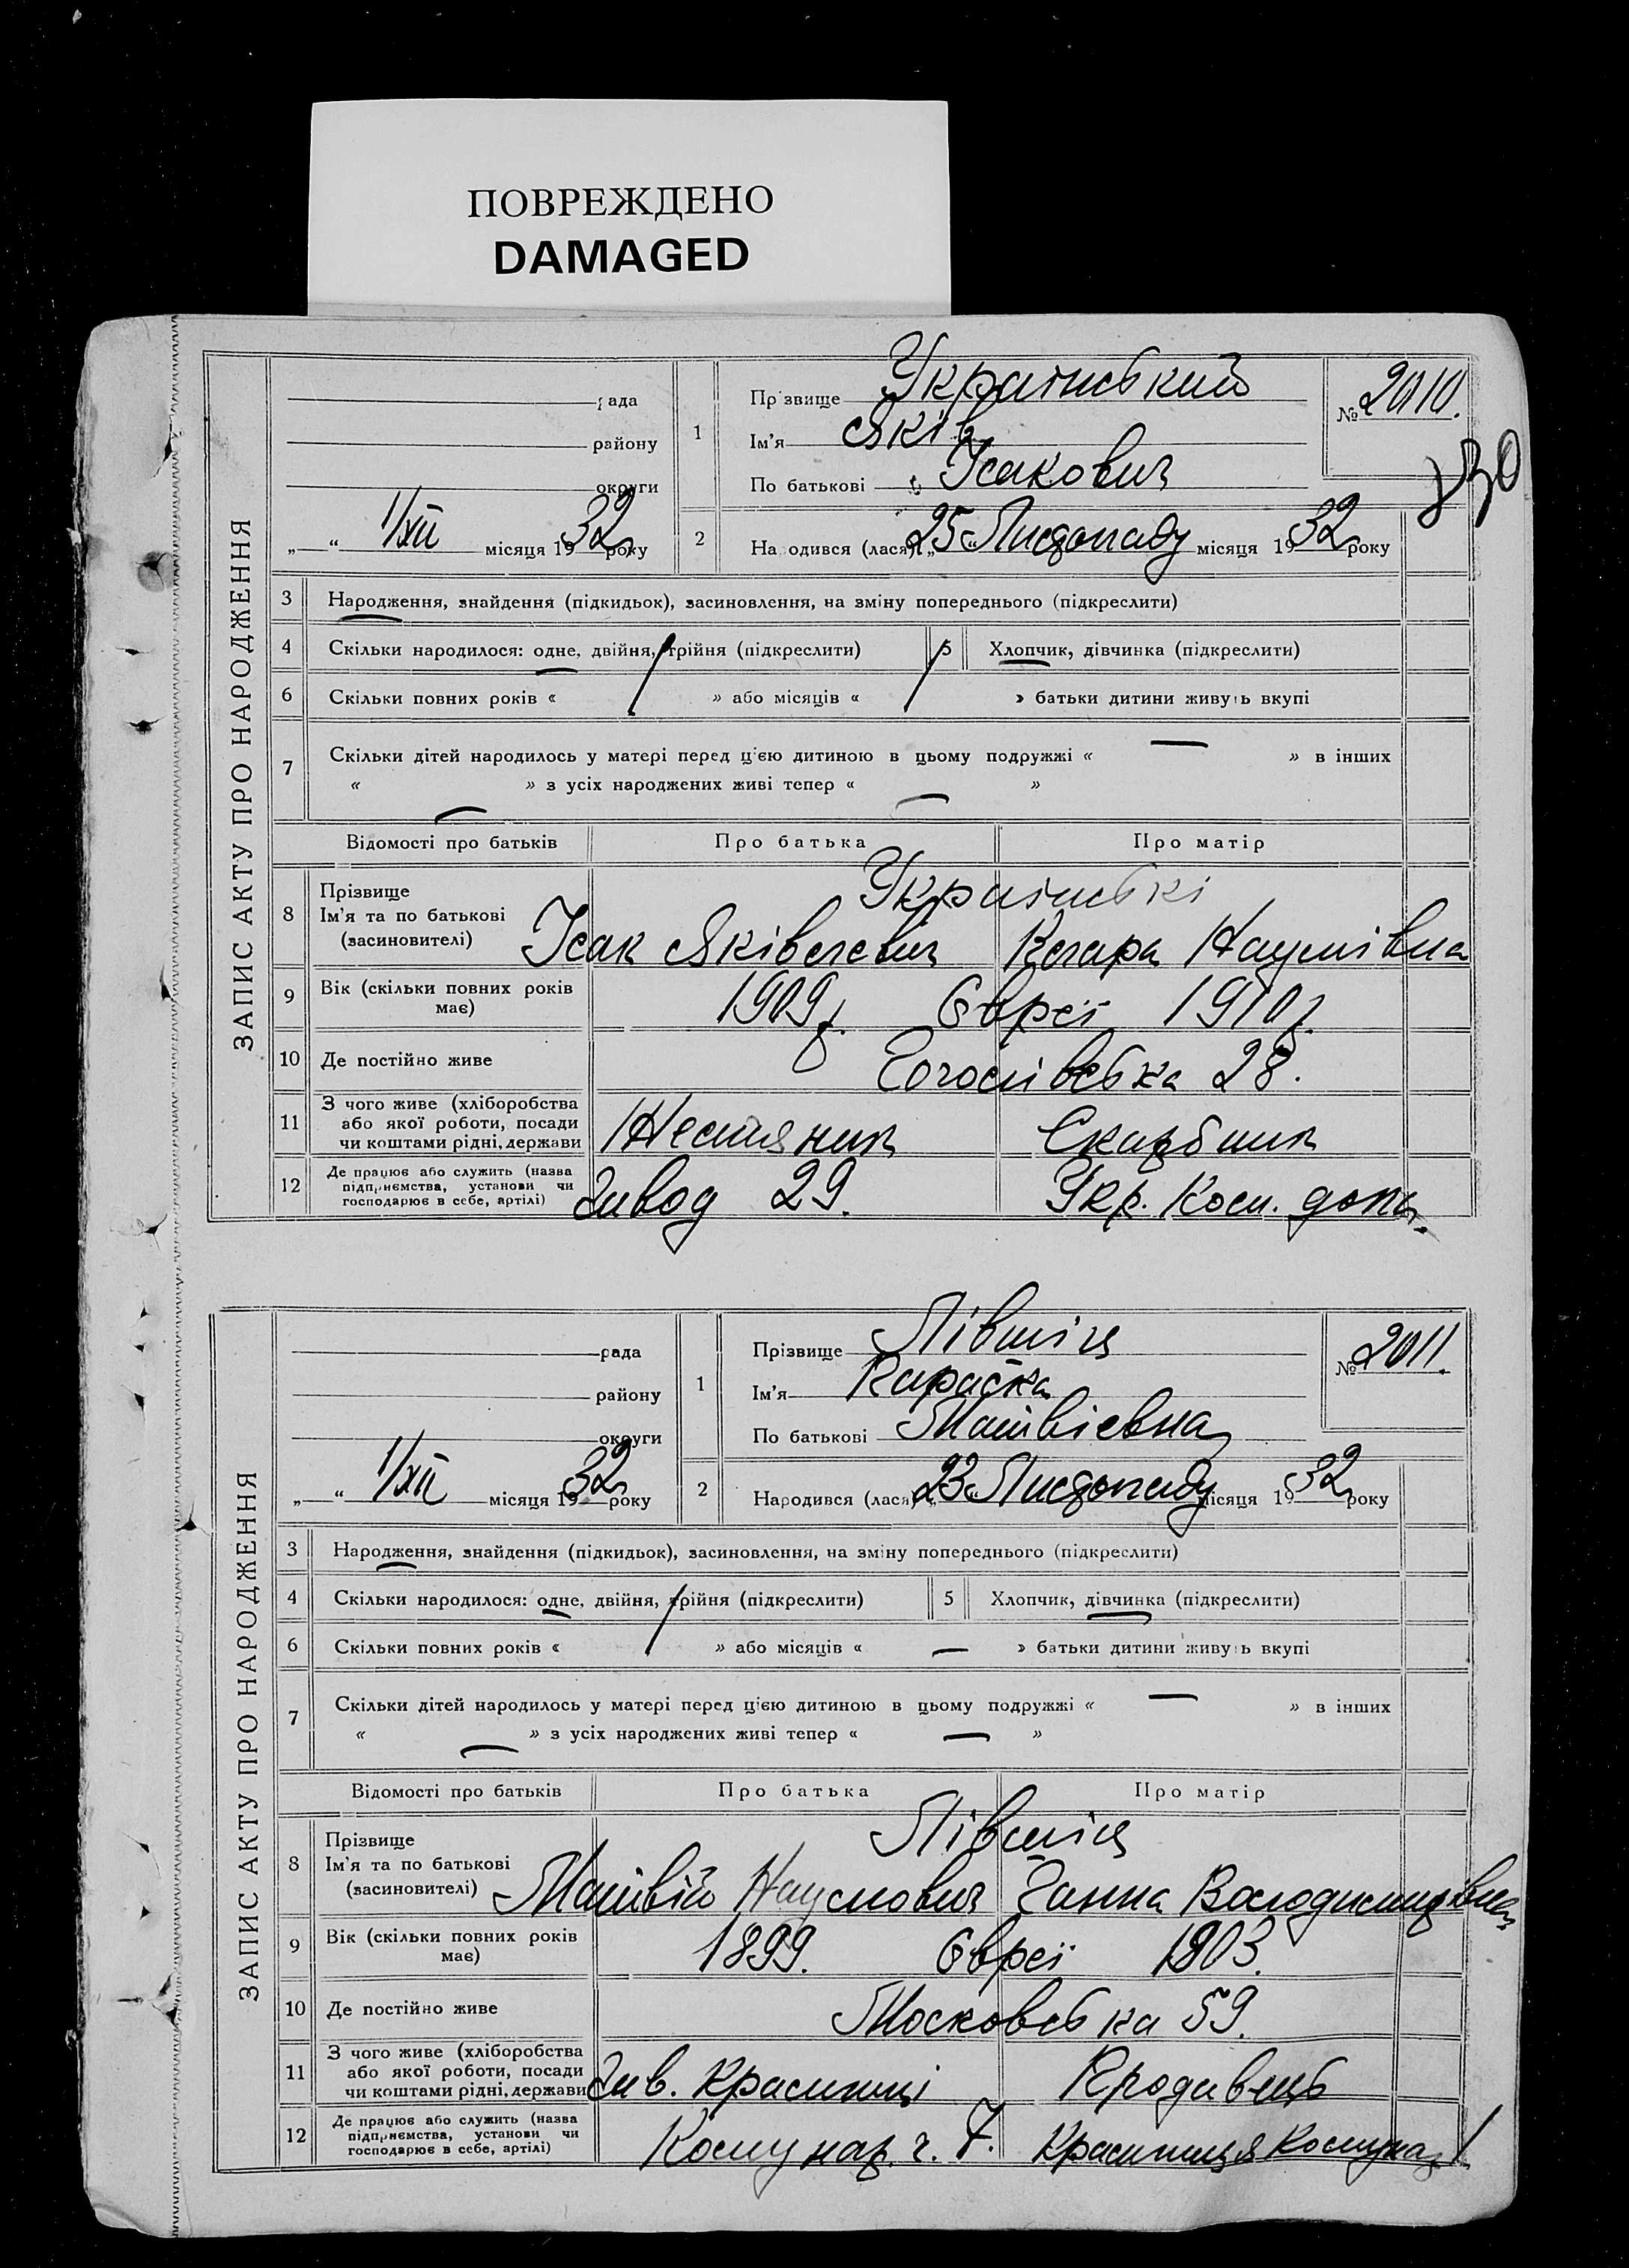 ПОВРЕЖДЕНО
DAMAGED
ЗАПИС АКТУ ПРО НАРОДЖЕННЯ
рада
району
округи
„ “ 1/XII місяця 1932 року
1
Прізвище Український
Ім'я Яків
По батькові Ісакович
№ 2010.
2
Народився (лася) „25“ Листопаду місяця 1932 року
3 Народження, знайдення (підкидьок), засиновлення, на зміну попереднього (підкреслити)
4 Скільки народилося: одне, двійня, трійня (підкреслити) 5 Хлопчик, дівчинка (підкреслити)
6 Скільки повних років « » або місяців « » батьки дитини живуть вкупі
7 Скільки дітей народилось у матері перед ц'єю дитиною в цьому подружжі « — » в інших
« — » з усіх народжених живі тепер « — »
Відомості про батьків Про батька Про матір
8 Прізвище Українські
Ім'я та по батькові
(засновителі) Ісак Яківлевич Клара Наумівна
9 Вік (скільки повних років має) 1909р. Євреї 1910р.
10 Де постійно живе 28.
11 З чого живе (хліборобства
або якої роботи, посади
чи коштами рідні, держави
Скарбник
12 Де працює або служить (назва
підприємства, установи чи
господарює в себе, артілі)
Завод 29. Укр. Ком. допом.
ЗАПИС АКТУ ПРО НАРОДЖЕННЯ
рада
району
округи
„ “ 1/XII місяця 1932 року
1
Прізвище Лівшиц
Ім'я
По батькові Матвієвна
№ 2011.
2
Народився (лася) „23“ Листопаду місяця 1932 року
3 Народження, знайдення (підкидьок), засиновлення, на зміну попереднього (підкреслити)
4 Скільки народилося: одне, двійня, трійня (підкреслити) 5 Хлопчик, дівчинка (підкреслити)
6 Скільки повних років « » або місяців « — » батьки дитини живуть вкупі
7 Скільки дітей народилось у матері перед ц'єю дитиною в цьому подружжі « — » в інших
« — » з усіх народжених живі тепер « — »
Відомості про батьків Про батька Про матір
8 Прізвище Лівшиц
Ім'я та по батькові
(засновителі) Матвій Наумович Ганна Володимирівна
9 Вік (скільки повних років має) 1899. Євреї 1903.
10 Де постійно живе Московська 59.
11 З чого живе (хліборобства
або якої роботи, посади
чи коштами рідні, держави
Зав. Крамниці Продавець
12 Де працює або служить (назва
підприємства, установи чи
господарює в себе, артілі)
Комунар. ч. 7. Крамниця Комунар 1